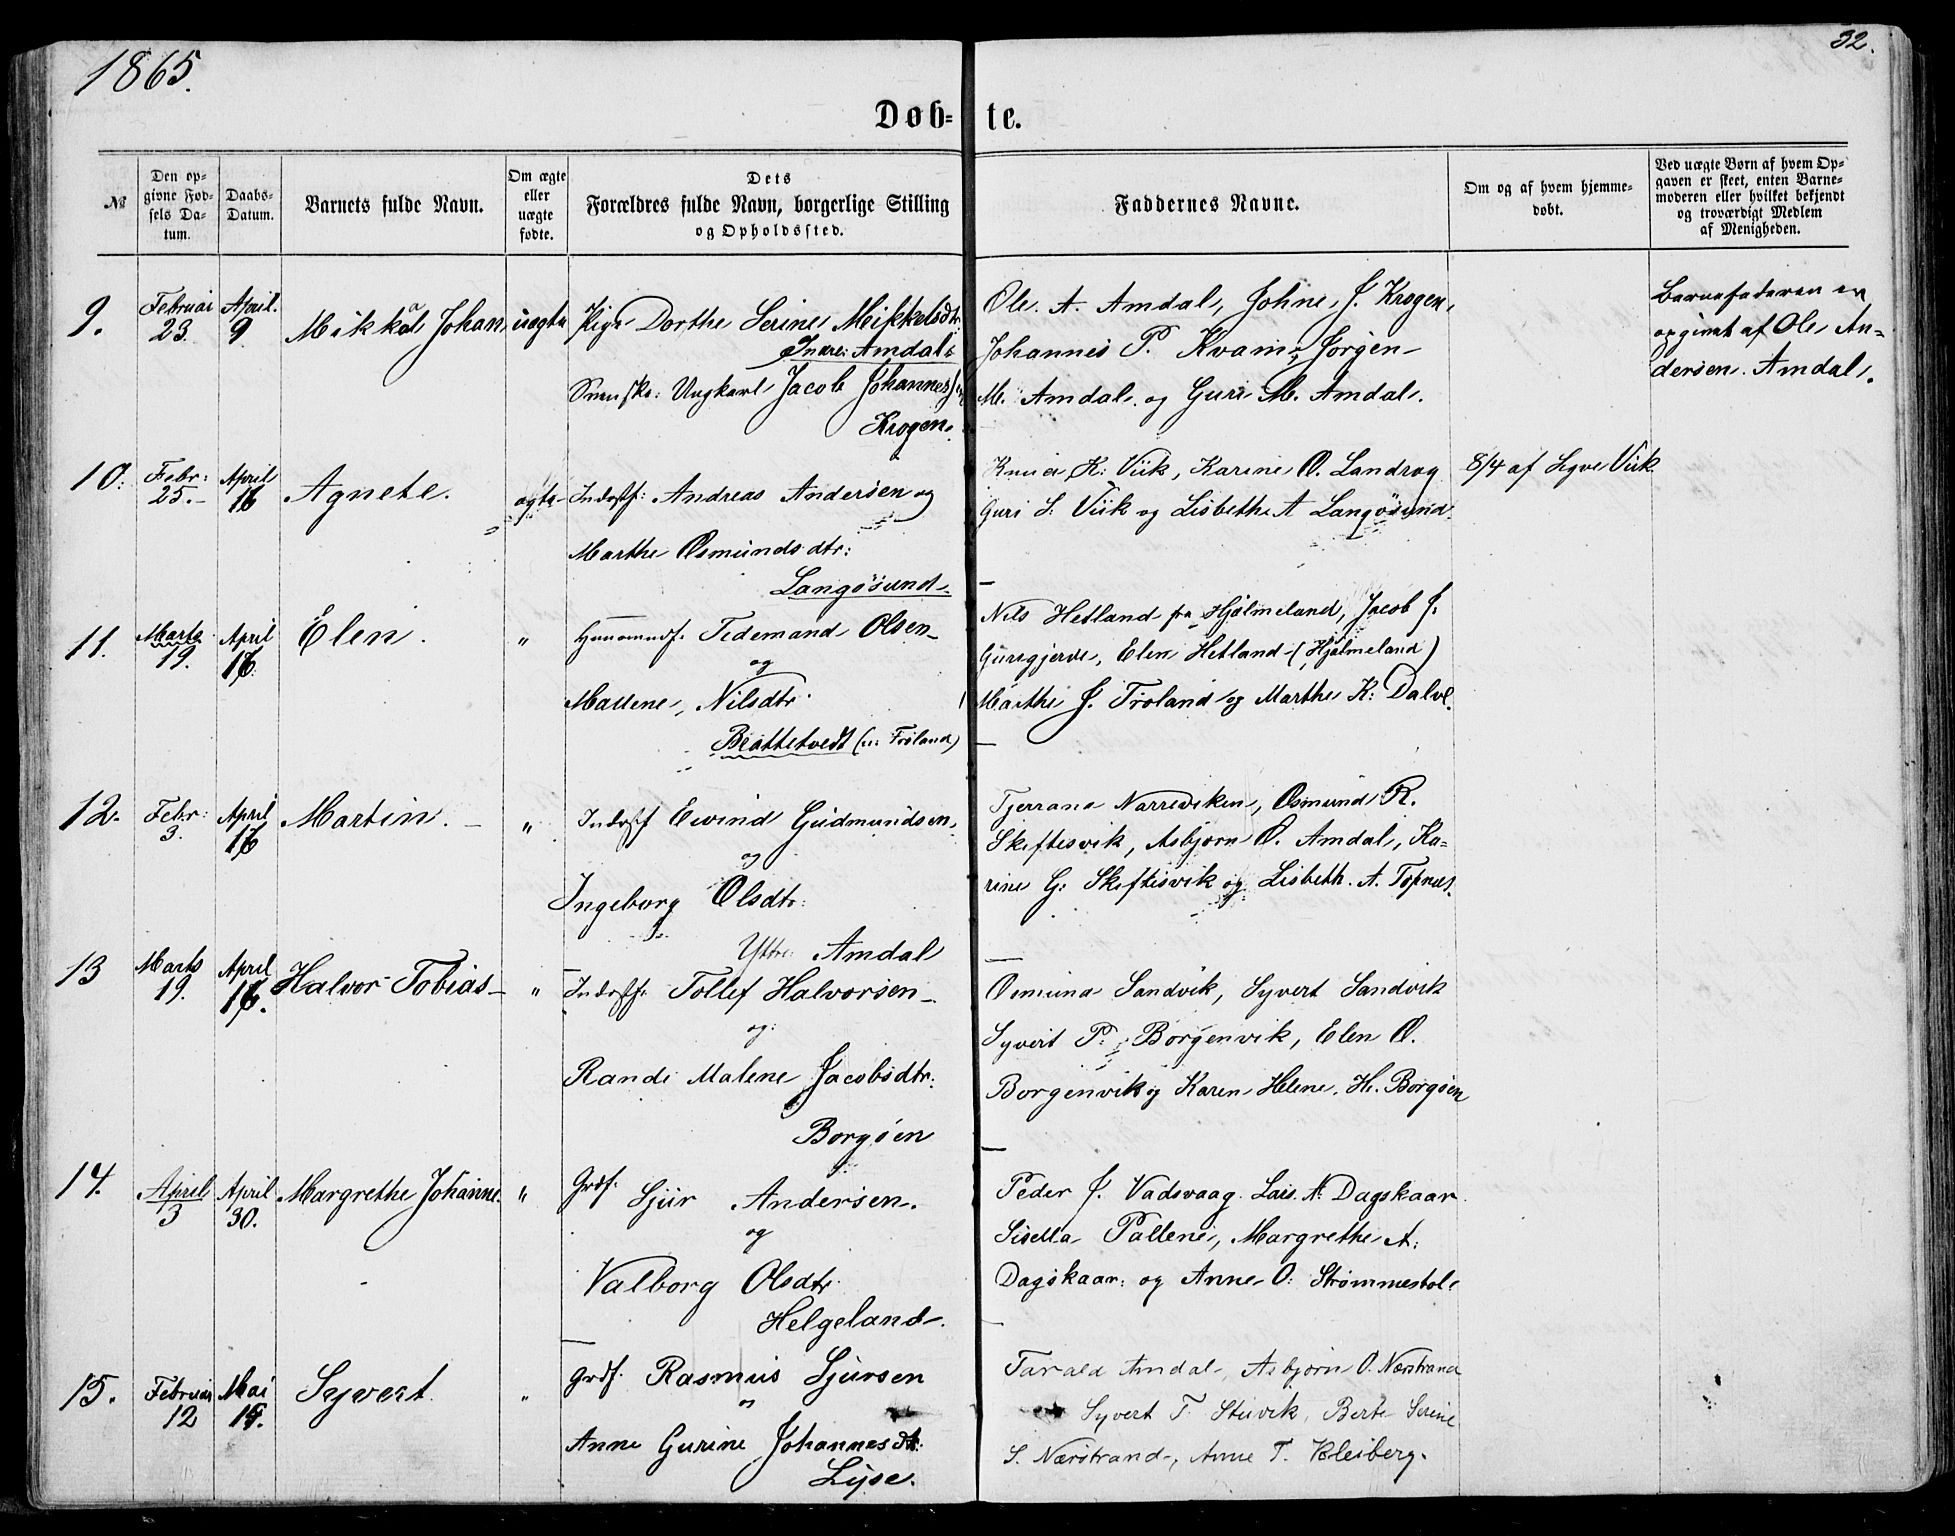 1865.
32.
Døb-te.
№
Den op-
givne Fød-
sels Da-
tum.
Daabs-
Datum.
Barnets fulde Navn.
Om ægte
eller
uægte
fødte.
Dets
Forældres fulde Navn, borgerlige Stilling
og Opholdssted.
Faddernes Navne.
Om og af hvem hjemme-
døbt.
Ved uægte Børn af hvem Op-
gaven er skeet, enten Barne-
moderen eller hvilket bekjendt
og troværdigt Medlem
af Menigheden.
9.
Februar
23.
April.
9
Mikkal Johan
uægte
Pige Dorthe Serine Meikkelsdtr
Indre Amdal
Ungkarl Jacob Johannes
Krogen.
Ole A. Amdal, Johne J. Krogen,
Johannes P. Kvam, Jørgen
M. Amdal. og Guri M. Amdal.
Barnefaderen er
opgivet af Ole An-
dersen Amdal.
10.
Febr:
25.
April
16
Agnete.
ægte
Indstf: Andreas Andersen og
Marthe Osmundsdtr:
Langøsund
K: Viik, Karine O. Landrog
Guri S: Viik og Lisbethe A Langøsund
8/4 af Syve Viik
11.
Marts
19.
April
16.
Elen.
"
Tedemand Olsen
og
Mallene, Nilsdtr
Brattetvedt ( Frøland)
Nils Hetland fra Hjølmeland, Jacob J.
Guregjerde, Elen Hetland (Hjølmeland)
Marthe J. Frøland og Marthe K: Dalve.
12.
Febr:
3.
April
16
Martin.
"
Indstf Eivind Gudmundsen,
og
Ingeborg Olsdtr:
Yttre Amdal
Tjerrand Narreviken, Osmund R.
Skeftesvik, Asbjørn O. Amdal, Ka-
rine G: Skeftisvik og Lisbeth. A. Topnes.
13
Marts
19.
April
16.
Halvor Tobias
"
Indstf: Tollef Halvorsen
og:
Rande Malene Jacobsdtr:
Borgøen
Osmund Sandvik, Syvert Sandvik
Syvert P: Borgenvik, Elen O.
Borgenvik og Karen Helene. H. Borgøen
14.
April
3
April
30.
Margrethe Johanne.
"
Grdf. Sjur Andersen.
og
Valborg Olsdtr
Helgeland.
Peder J. Vadsvaag. Lars. A. Dagskaar
Sisella Pallene, Margrethe A:
Dagskaar: og Anne O: Strømmestol.
15.
Februar
12
Mai
Syvert.
"
Grdf. Rasmus Sjursen
og
Anne Gurine Johannesdtr:
Lyse.
Tarald Amdal, Asbjørn O. Nærstrand
Syvert T. Stuvik, Berte Serine
S. Nærstrand, Anne T. Kleiberg.